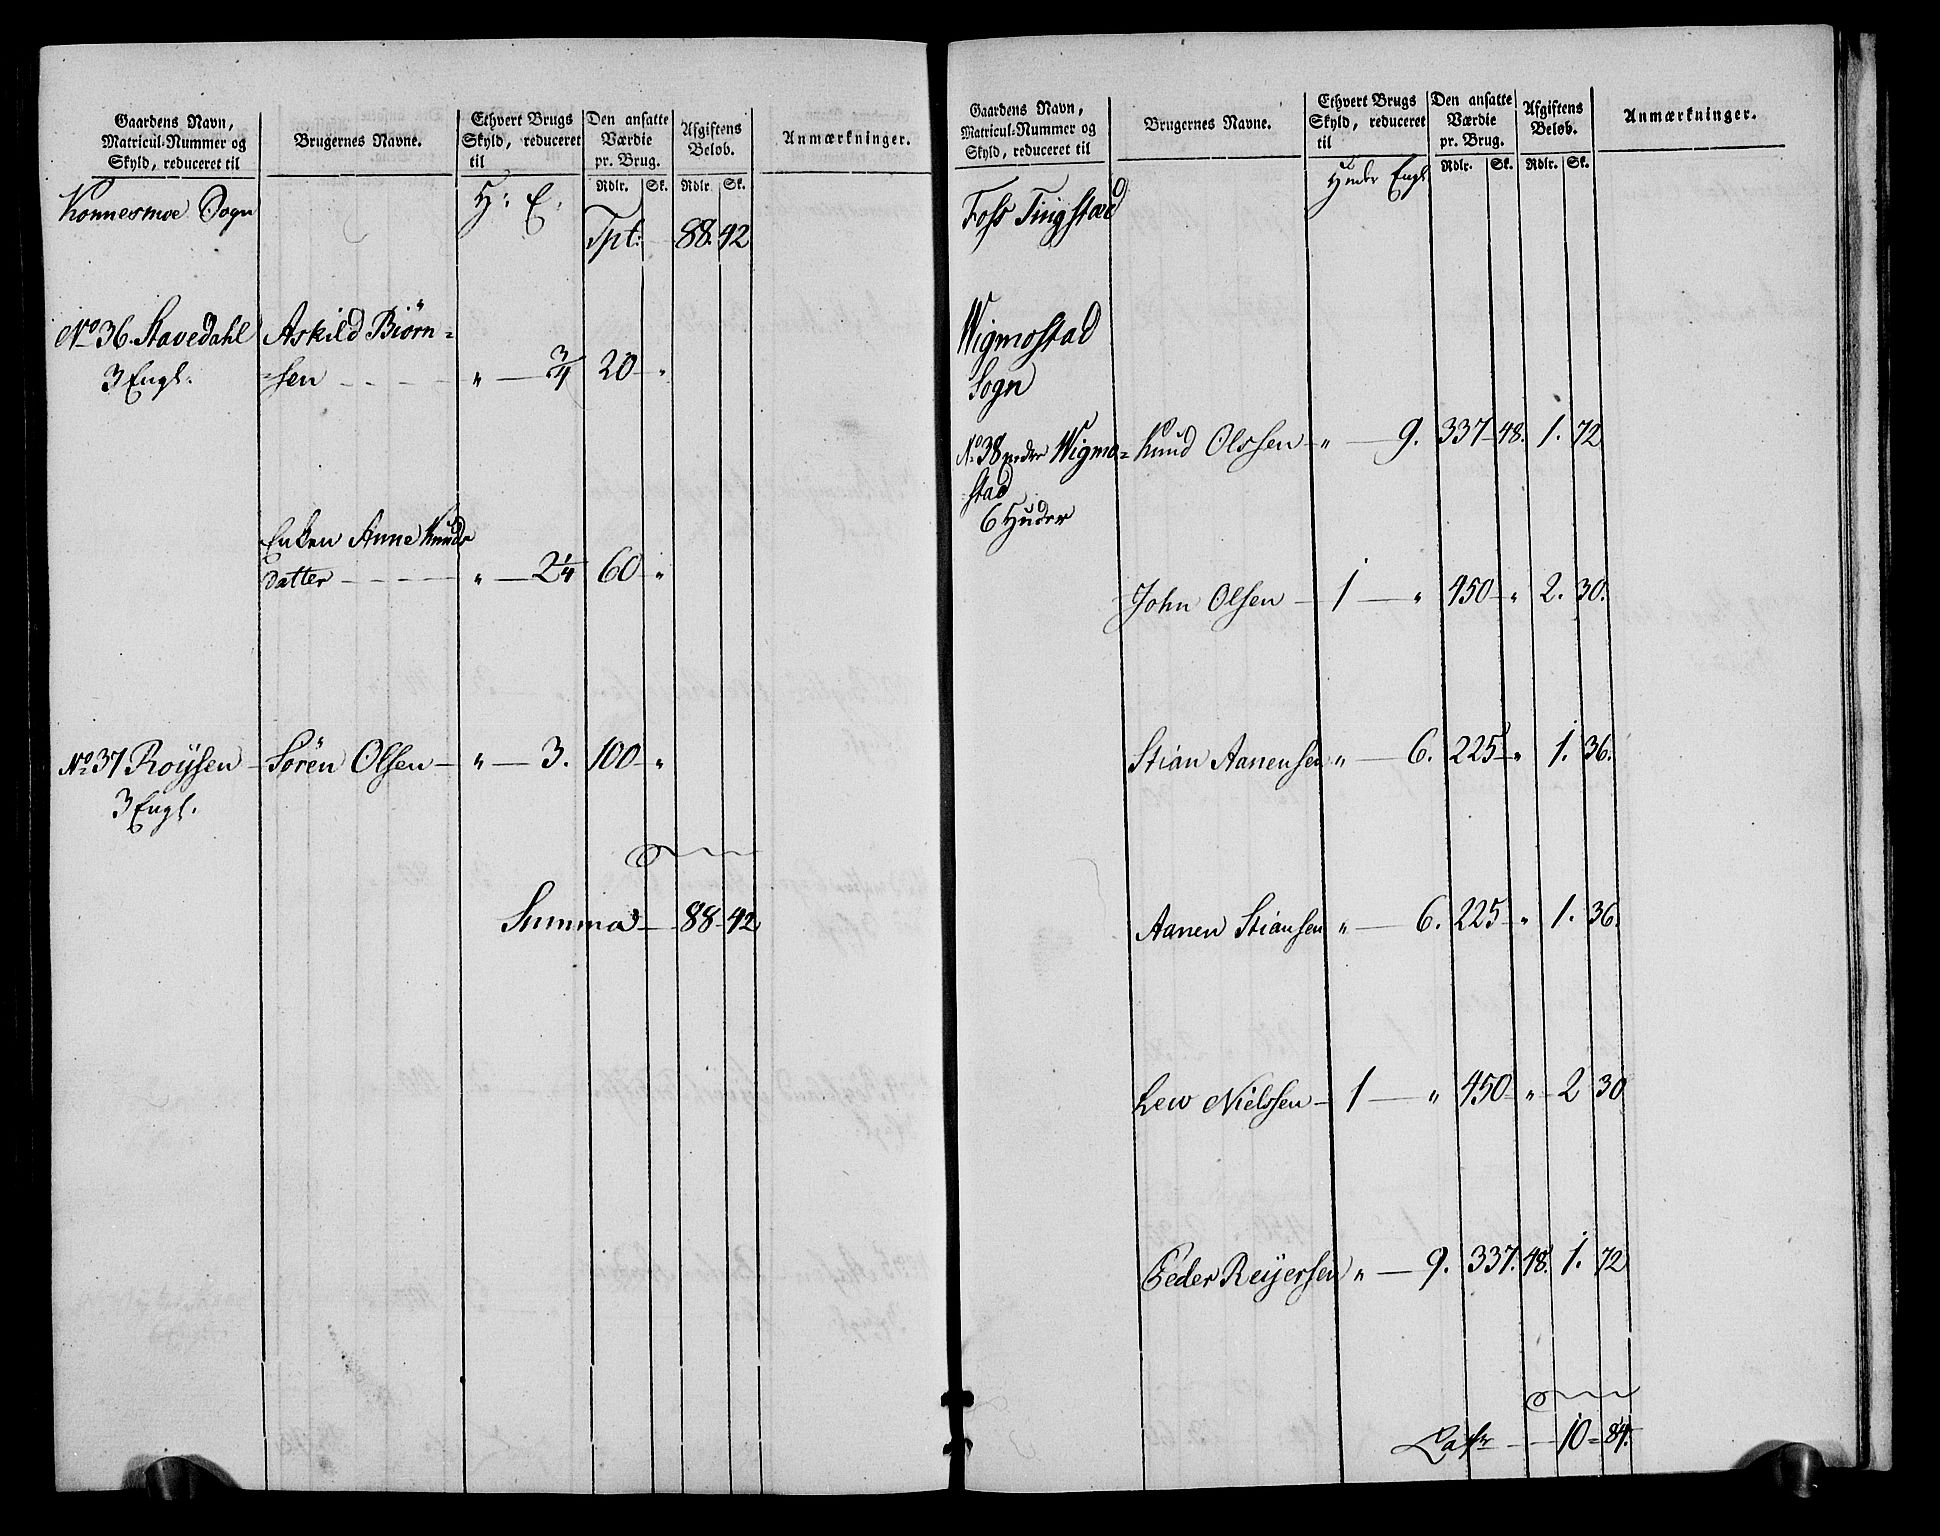 Gaardens Navn,
Matricul-Nummer og
Skyld, reduceret til
Brugernes Navne.
Ethvert Brugs
Skyld, reduceret
til
Den ansatte
Værdie
pr. Brug.
Rdlr. Sk.
Afgiftens
Beløb.
Rdlr. Sk.
Anmærkninger.
Konnesmoe Sogn
H: E:
Tpt: 88. 42
No 36. Stavedahl Askild Biörn=
3 Engl. =sen - - - - „ — 3/4 20 - „
Enken Anne Knuds
datter - - - - „ — 2 1/4 60 „
No 37 Roÿsen - Sören Olsen - „ — 3. 100 - „
3 Engl.
Summa - 88 - 42
Gaardens Navn,
Matricul-Nummer og
Skyld, reduceret til
Brugernes Navne.
Ethvert Brugs
Skyld, reduceret
til
Den ansatte
Værdie
pr. Brug.
Rdlr. Sk.
Afgiftens
Beløb.
Rdlr. Sk.
Anmærkninger.
Huder Engl
Foss Tingstæd
Wigmostad
Sogn
No 38 Wigmo= Knud Olssen - „ — 9. 337 - 48. 1. 72
=stad
6 Huder
John Olsen - 1 — „ 450 - „ 2. 30.
Stian Aanensen „ — 6. 225 - „ 1. 36.
Aanen Stiansen „ — 6. 225 - „ 1. 36.
Lew Nielssen - 1 — „ 450 - „ 2 30
Peder Reÿersen „ — 9. 337. 48. 1. 72
Lats - - 10 = 84.